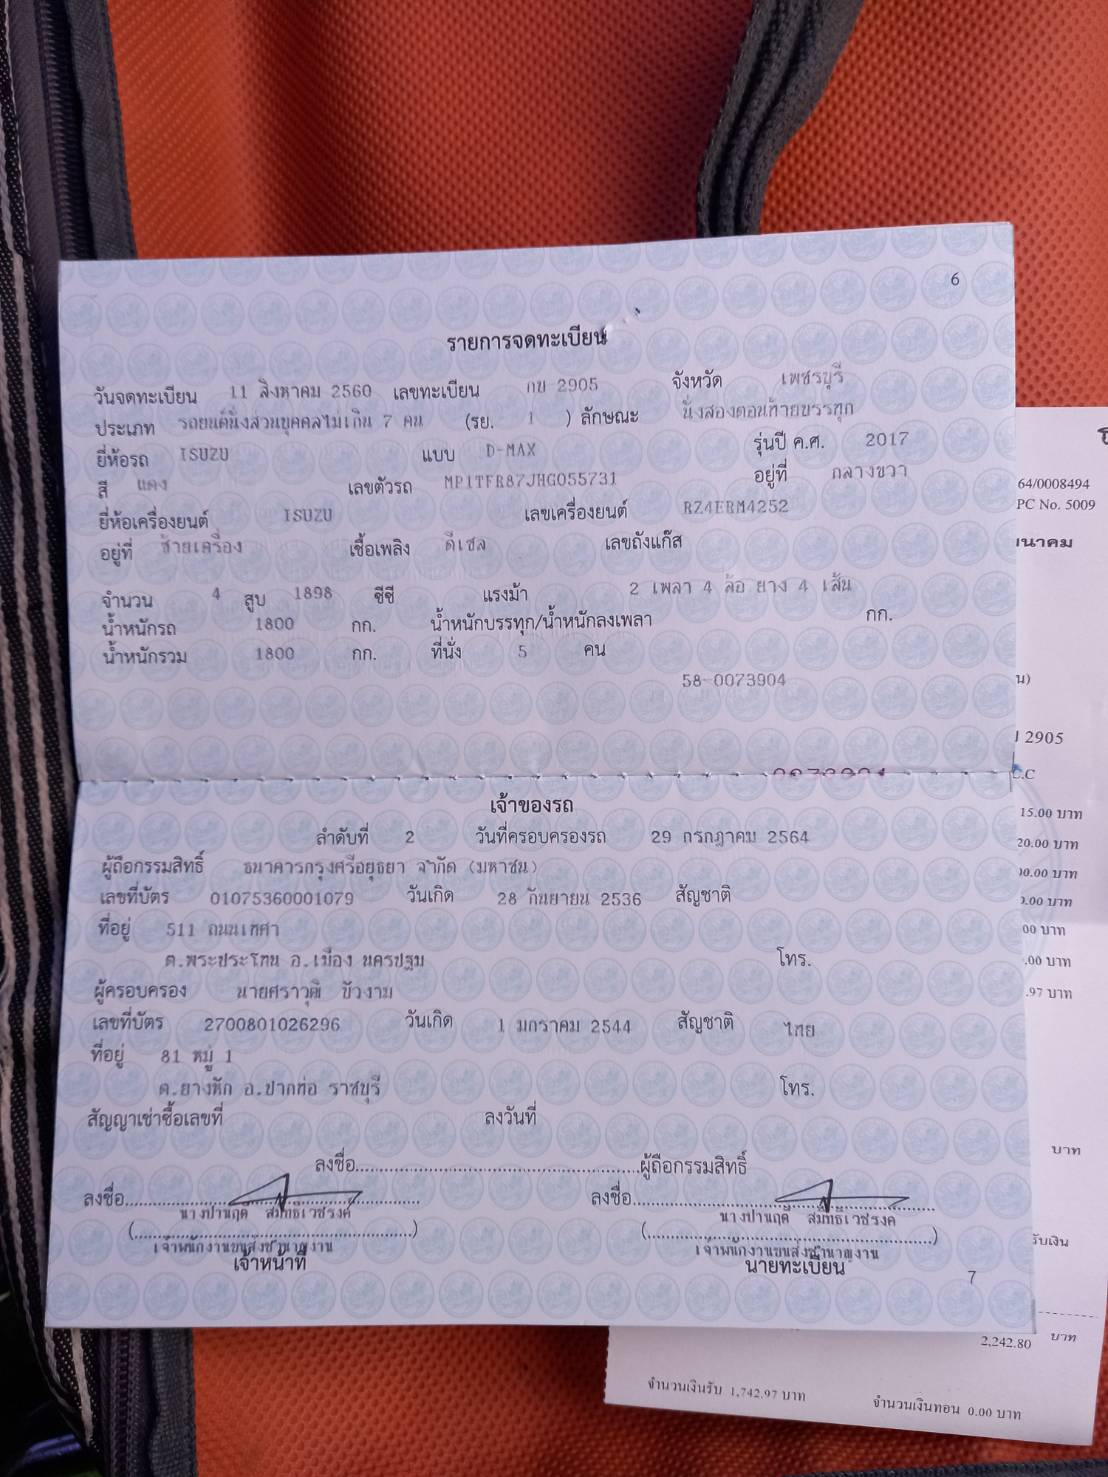 6
รายการจดทะเบียน
วันจดทะเบียน 11 สิงหาคม 2560 เลขทะเบียน กข 2905 จังหวัด เพชรบุรี
ประเภท รถยนต์นั่งส่วนบุคคลไม่เกิน 7 คน (รย. 1 ) ลักษณะ นั่งสองตอนท้ายบรรทุก
ยี่ห้อรถ ISUZU แบบ D-MAX รุ่นปี ค.ศ. 2017
สี แดง เลขตัวรถ MP1TFR87JHG055731 อยู่ที่ กลางขวา
ยี่ห้อเครื่องยนต์ ISUZU เลขเครื่องยนต์ RZ4ERM4252
อยู่ที่ ซ้ายเครื่อง เชื้อเพลิง ดีเซล เลขถังแก๊ส
จำนวน 4 สูบ 1898 ซีซี แรงม้า 2 เพลา 4 ล้อ ยาง 4 เส้น
น้ำหนักรถ 1800 กก. น้ำหนักบรรทุก/น้ำหนักลงเพลา กก.
น้ำหนักรวม 1800 กก. ที่นั่ง 5 คน
58-0073904
เจ้าของรถ
ลำดับที่ 2 วันที่ครอบครองรถ 29 กรกฎาคม 2564
ผู้ถือกรรมสิทธิ์ ธนาคารกรุงศรีอยุธยา จำกัด (มหาชน)
เลขที่บัตร 01075360001079 วันเกิด 28 กันยายน 2536 สัญชาติ
ที่อยู่ 511 ถนนเทศา
ต.พระประโทน อ.เมือง นครปฐม โทร.
ผู้ครอบครอง นายศราวุฒิ บัวงาม
เลขที่บัตร 2700801026296 วันเกิด 1 มกราคม 2544 สัญชาติ ไทย
ที่อยู่ 81 หมู่ 1
ต.ยางหัก อ.ปากท่อ ราชบุรี โทร.
สัญญาเช่าซื้อเลขที่ ลงวันที่
ลงชื่อ ผู้ถือกรรมสิทธิ์
ลงชื่อ ลงชื่อ
นางปานฤดี สมิทธิเวชรงค์ นางปานฤดี สมิทธิเวชรงค์
เจ้าพนักงานขนส่งชำนาญงาน เจ้าพนักงานขนส่งชำนาญงาน
เจ้าหน้าที่ นายทะเบียน
7
64/0008494
PC No. 5009
นาคม
น)
2905
C.C
15.00 บาท
20.00 บาท
00.00 บาท
.00 บาท
00 บาท
.00 บาท
.97 บาท
บาท
รับเงิน
2,242.80 บาท
จำนวนเงินรับ 1,742.97 บาท จำนวนเงินทอน 0.00 บาท